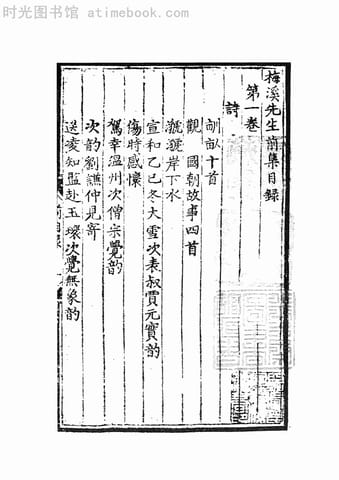 时光图书馆 - www.atimebook.com
梅溪先生前集目録
第一卷
詩
畎畝十首
觀國朝故事四首
岸下水
宣和乙巳冬大雪次表叔賈元實韵
傷時感懷
駕幸溫州次僧宗覺韵
次韵劉謙仲見寄
送凌知監赴玉環次覺無象韵